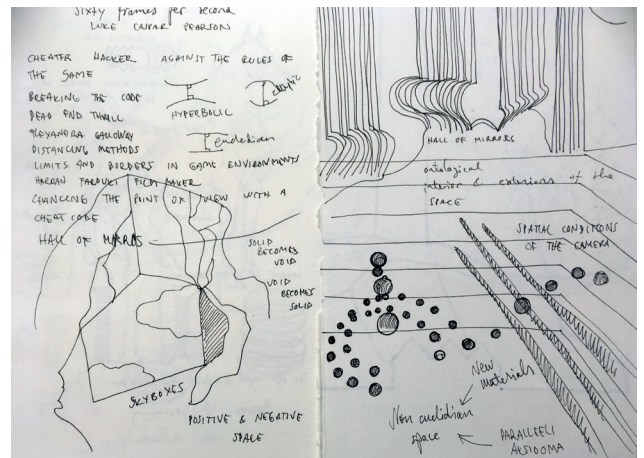 Sixty frames per second
LUKE CASPAR PEARSON
CHEATER HACKER AGAINST THE RULES OF
THE GAME
BREAKING THE CODE
DEAD END THRILL
HYPERBOLIC
elliptic
GALLOWAY
DISTANCING METHODS
euclidian
LIMITS AND BORDERS IN GAME ENVIRONMENTS
HARRAN FAROUKI FILM MAKER
CHANGING THE POINT OF VIEW WITH A
CHEAT CODE
HALL OF MIRROS
SOLID
BECOMES
VOID
VOID
BECOMES
SOLID
SKYBOXES
POSITIVE & NEGATIVE
SPACE
HALL OF MIRRORS
ontological
interior & exteriors of the
SPACE
SPATIAL CONDITIONS
OF THE CAMERA
New
materials
Non euclidian
space
PARALLELI
ALSIOOMA